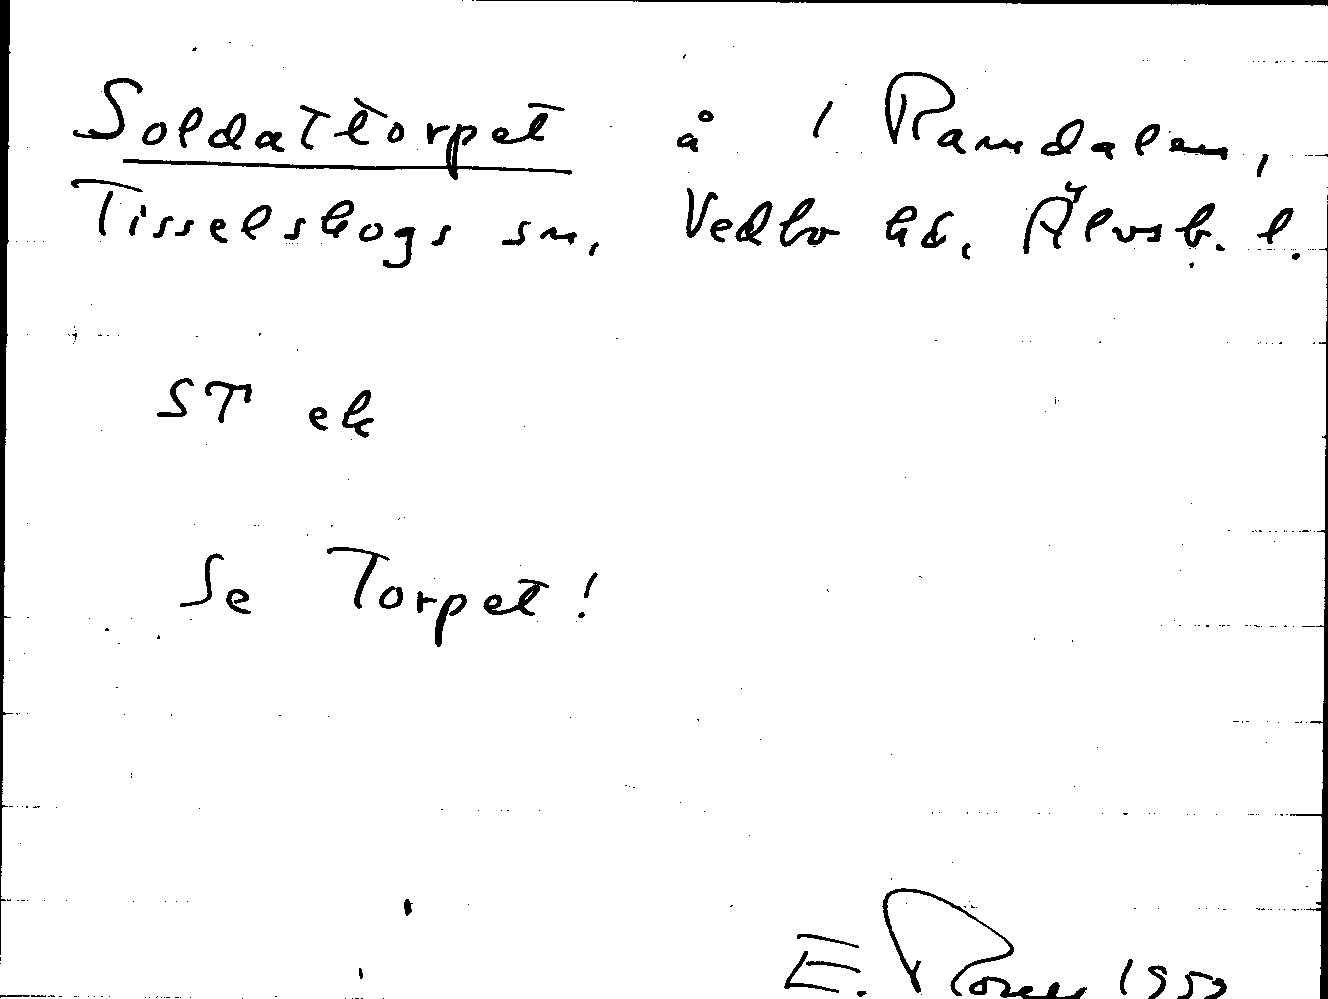 Soldattorpet å 1 Ramdalen,
Tisselskogs sn, Vedbo hd, Älvsb. l.
ST ek
Se Torpet!
E. 195